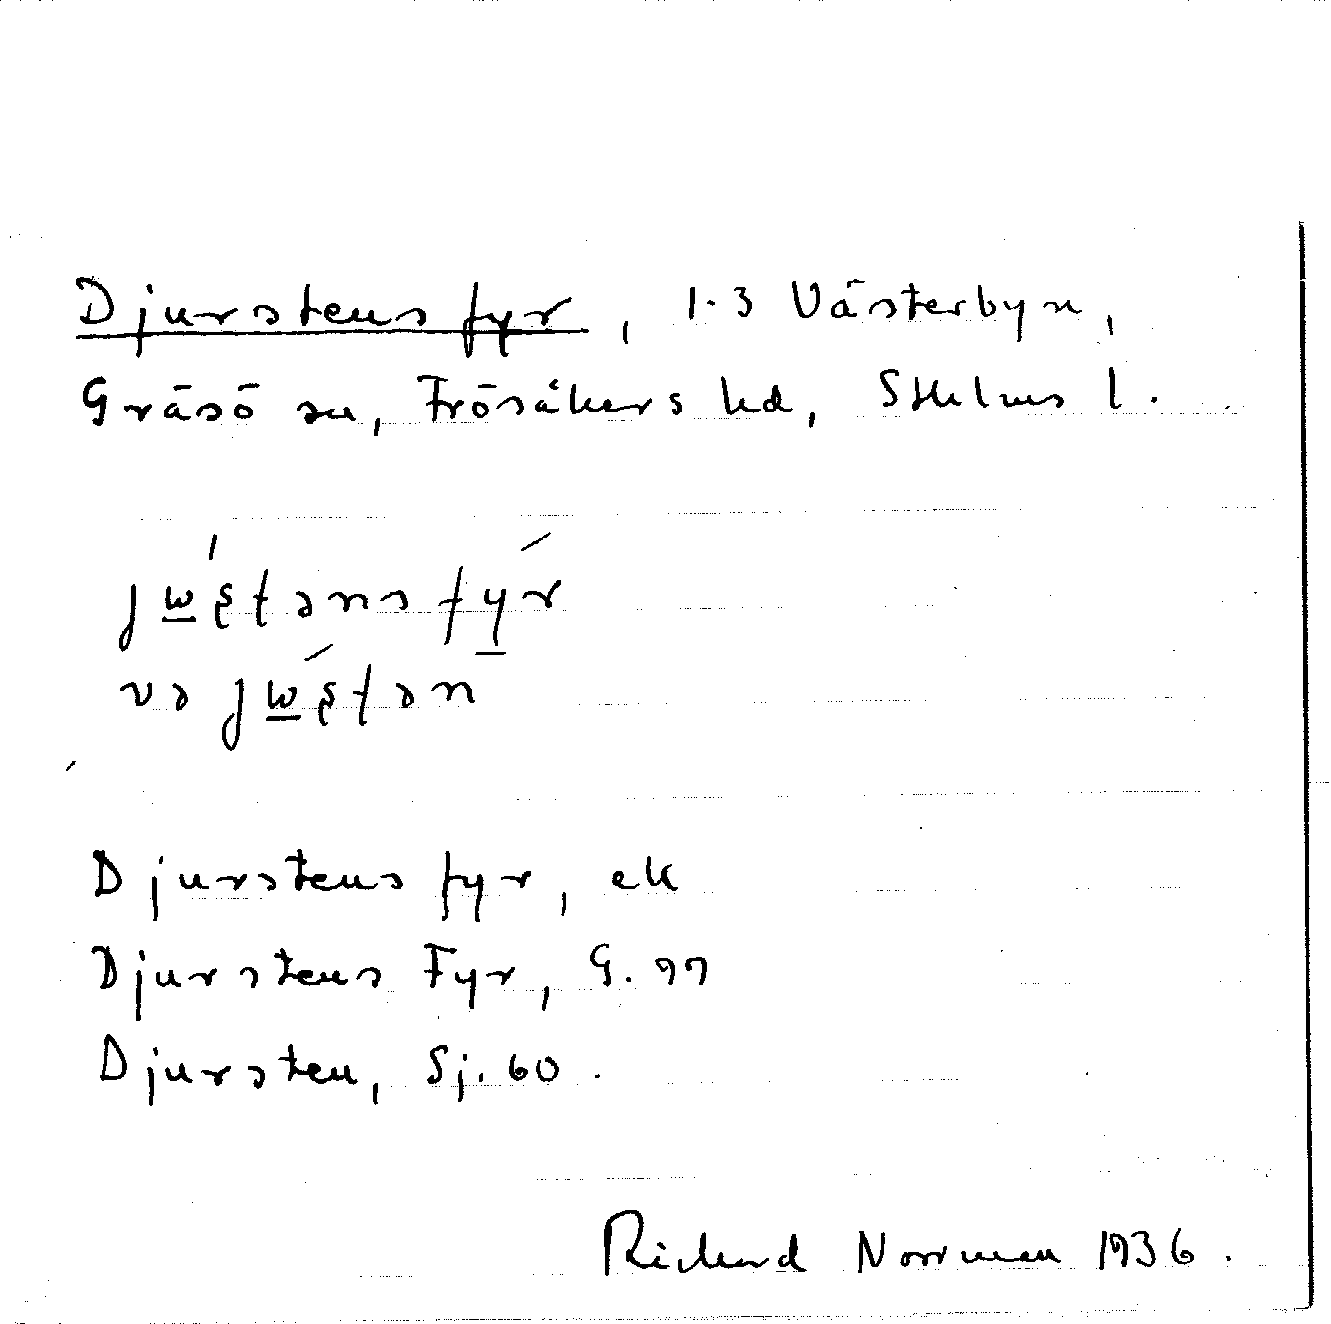 Djurstens fyr, 1.3 Västerbyn,
Gräsö sn, Frösåkers hd, Sthlms l.
Djurstens fyr, ek
Djurstens Fyr, G. 77
Djursten, Sj. 60.
Richard Norrman 1936.